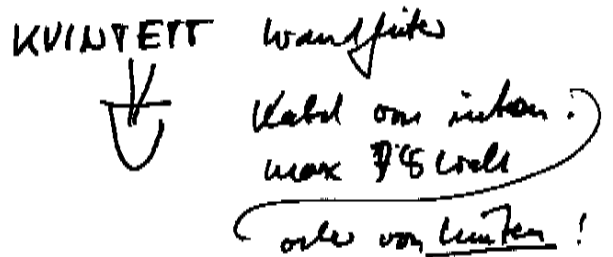 KVINTETT Wandfluter
Kabel von unten:
max
oder von hinten!